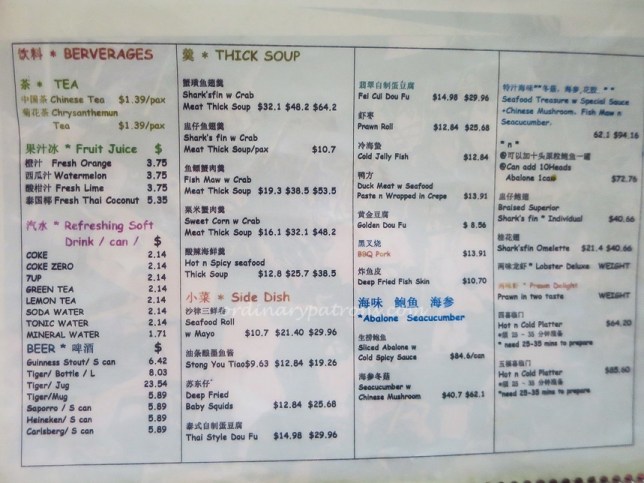 饮料 * BERVERAGES
茶 * TEA
中国茶 Chinese Tea $1.39/pax
菊花茶 Chrysanthemun
Tea $1.39/pax
果汁冰 * Fruit Juice $
橙汁 Fresh Orange 3.75
西瓜汁 Watermelon 3.75
酸柑汁 Fresh Lime 3.75
泰国椰 Fresh Thai Coconut 5.35
汽水 * Refreshing Soft
Drink / can / $
COKE 2.14
COKE ZERO 2.14
7UP 2.14
GREEN TEA 2.14
LEMON TEA 2.14
SODA WATER 2.14
TONIC WATER 2.14
MINERAL WATER 1.71
BEER * 啤酒 $
Guinness Stout/ S can 6.42
Tiger/ Bottle / L 8.03
Tiger/ Jug 23.54
Tiger/Mug 5.89
Saporro / S can 5.89
Heineken/ S can 5.89
Carlsberg/ S can 5.89
羹 * THICK SOUP
蟹璜鱼翅羹
Shark'sfin w Crab
Meat Thick Soup $32.1 $48.2 $64.2
盅仔鱼翅羹
Shark's fin w Crab
Meat Thick Soup/pax $10.7
鱼鳔蟹肉羹
Fish Maw w Crab
Meat Thick Soup $19.3 $38.5 $53.5
粟米蟹肉羹
Sweet Corn w Crab
Meat Thick Soup $16.1 $32.1 $48.2
酸辣海鲜羹
Hot n Spicy seafood
Thick Soup $12.8 $25.7 $38.5
小菜 * Side Dish
沙律三鲜卷
Seafood Roll
w Mayo $10.7 $21.40 $29.96
油条酿墨鱼酱
Stong You Tiao $9.63 $12.84 $19.26
苏东仔
Deep Fried
Baby Squids $12.84 $25.68
泰式自制蛋豆腐
Thai Style Dou Fu $14.98 $29.96
翡翠自制蛋豆腐
Fei Cui Dou Fu $14.98 $29.96
虾枣
Prawn Roll $12.84 $25.68
冷海蜇
Cold Jelly Fish $12.84
鸭方
Duck Meat w Seafood
Paste n Wrapped in Crepe $13.91
黄金豆腐
Golden Dou Fu $ 8.56
黑叉烧
BBQ Pork $13.91
炸鱼皮
Deep Fried Fish Skin $10.70
海味 鲍鱼 海参
*Abalone Seacucumber
生捞鲍鱼
Sliced Abalone w
Cold Spicy Sauce $84.6/can
海参冬菇
Seacucumber w
Chinese Mushroom $40.7 $62.1
特汁海味**冬菇, 海参,花胶 * *
Seafood Treasure w Special Sauce
*Chinese Mushroom. Fish Maw n
Seacucumber.
62.1 $94.16
* n *
@可以加十头菜粒鲍鱼一罐
@Can add 10Heads
Abalone 1can $72.76
盅仔鲍翅
Braised Superior
Shark's fin * Individual $40.66
桂花翅
Shark'sfin Omelette $21.4 $40.66
两味龙虾 * Lobster Deluxe WEIGHT
* Prawn Delight
Prawn in two taste WEIGHT
四喜临门
Hot n Cold Platter $64.20
*need 25-35 mins to prepare
五福临门
Hot n Cold Platter $85.60
*need 25-35 mins to prepare
ordinarypatrons.com